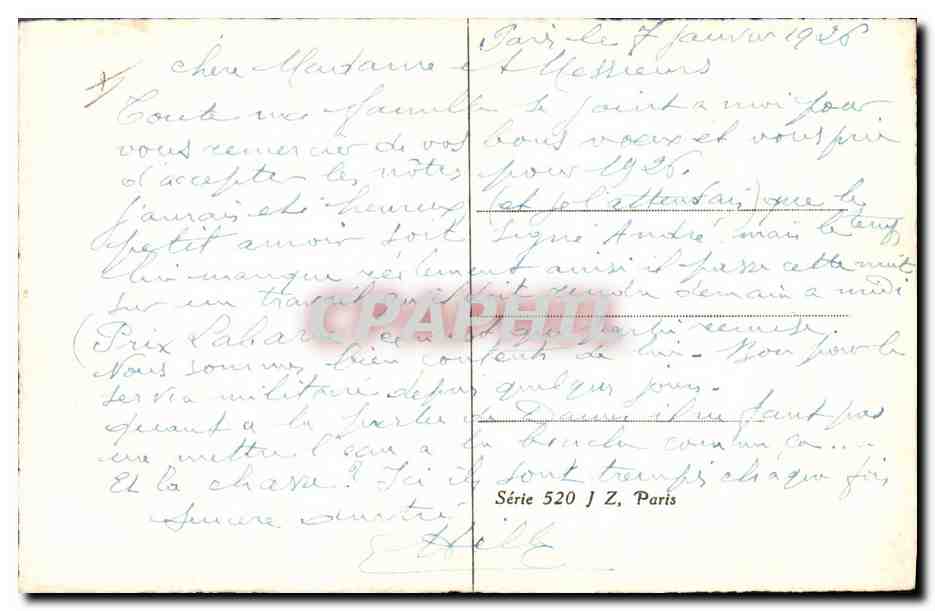 Paris le 7 Janvier 1926
Chère Madame et Messieurs
Toute ma famille se joint a moi pour
vous remercier de vos bons voeux et vous prie
d'accepter les nôtres pour 1926.
J'aurais été heureux (et je l'attendais) que le
petit soit signé André mais le temps
lui manque réellement ainsi il passe cette nuit
sur un travail doit rendu demain a midi
(Prix Labarre remise.
Nous sommes bien contents de lui - Bon pour le
service militaire depuis quelques jours.
Quant a la de il ne faut pas
me mettre l'eau a la bouche comme ça...
Et la chasse? Ici ils sont trempés chaque fois
Sincère amitié
Hill
CPAPHIL
Série 520 J Z, Paris